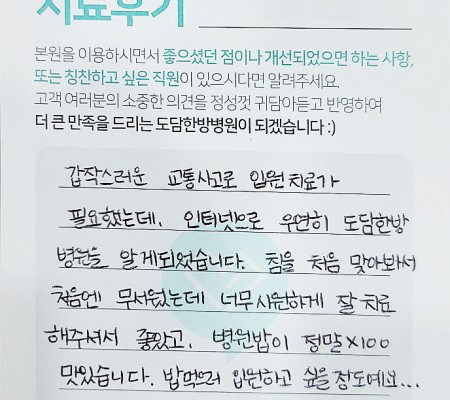 치료후기
본원을 이용하시면서 좋으셨던 점이나 개선되었으면 하는 사항,
또는 칭찬하고 싶은 직원이 있으시다면 알려주세요.
고객 여러분의 소중한 의견을 정성껏 귀담아듣고 반영하여
더 큰 만족을 드리는 도담한방병원이 되겠습니다 :)
갑작스러운 교통사고로 입원치료가
필요했는데, 인터넷으로 우연히 도담한방
병원을 알게되었습니다. 침을 처음 맞아봐서
처음엔 무서웠는데 너무시원하게 잘치료
해주셔서 좋았고, 병원밥이 정말x100
맛있습니다. 밥먹으러 입원하고 싶을정도예요...